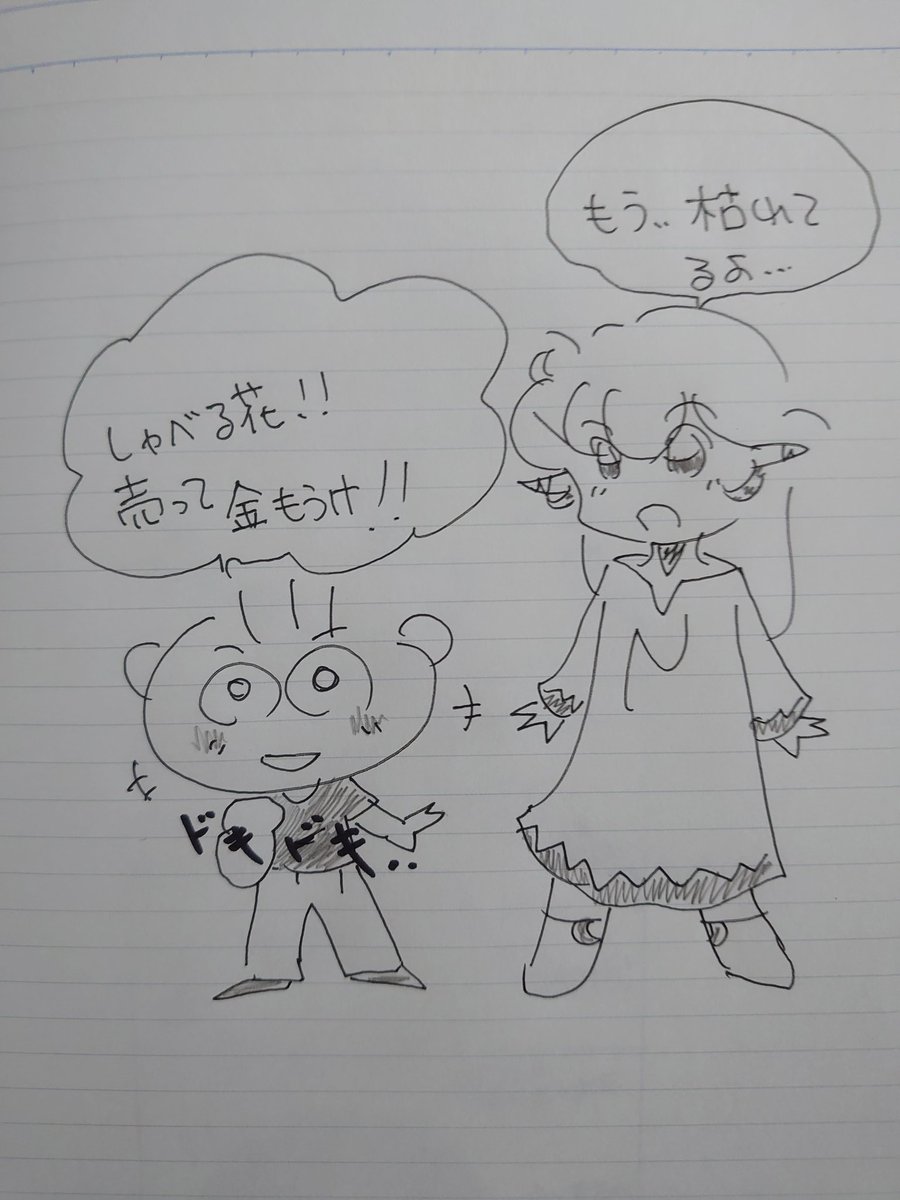 もう..枯れて
るよ...
しゃべる花!!
売って金もうけ!!
ドキドキ..